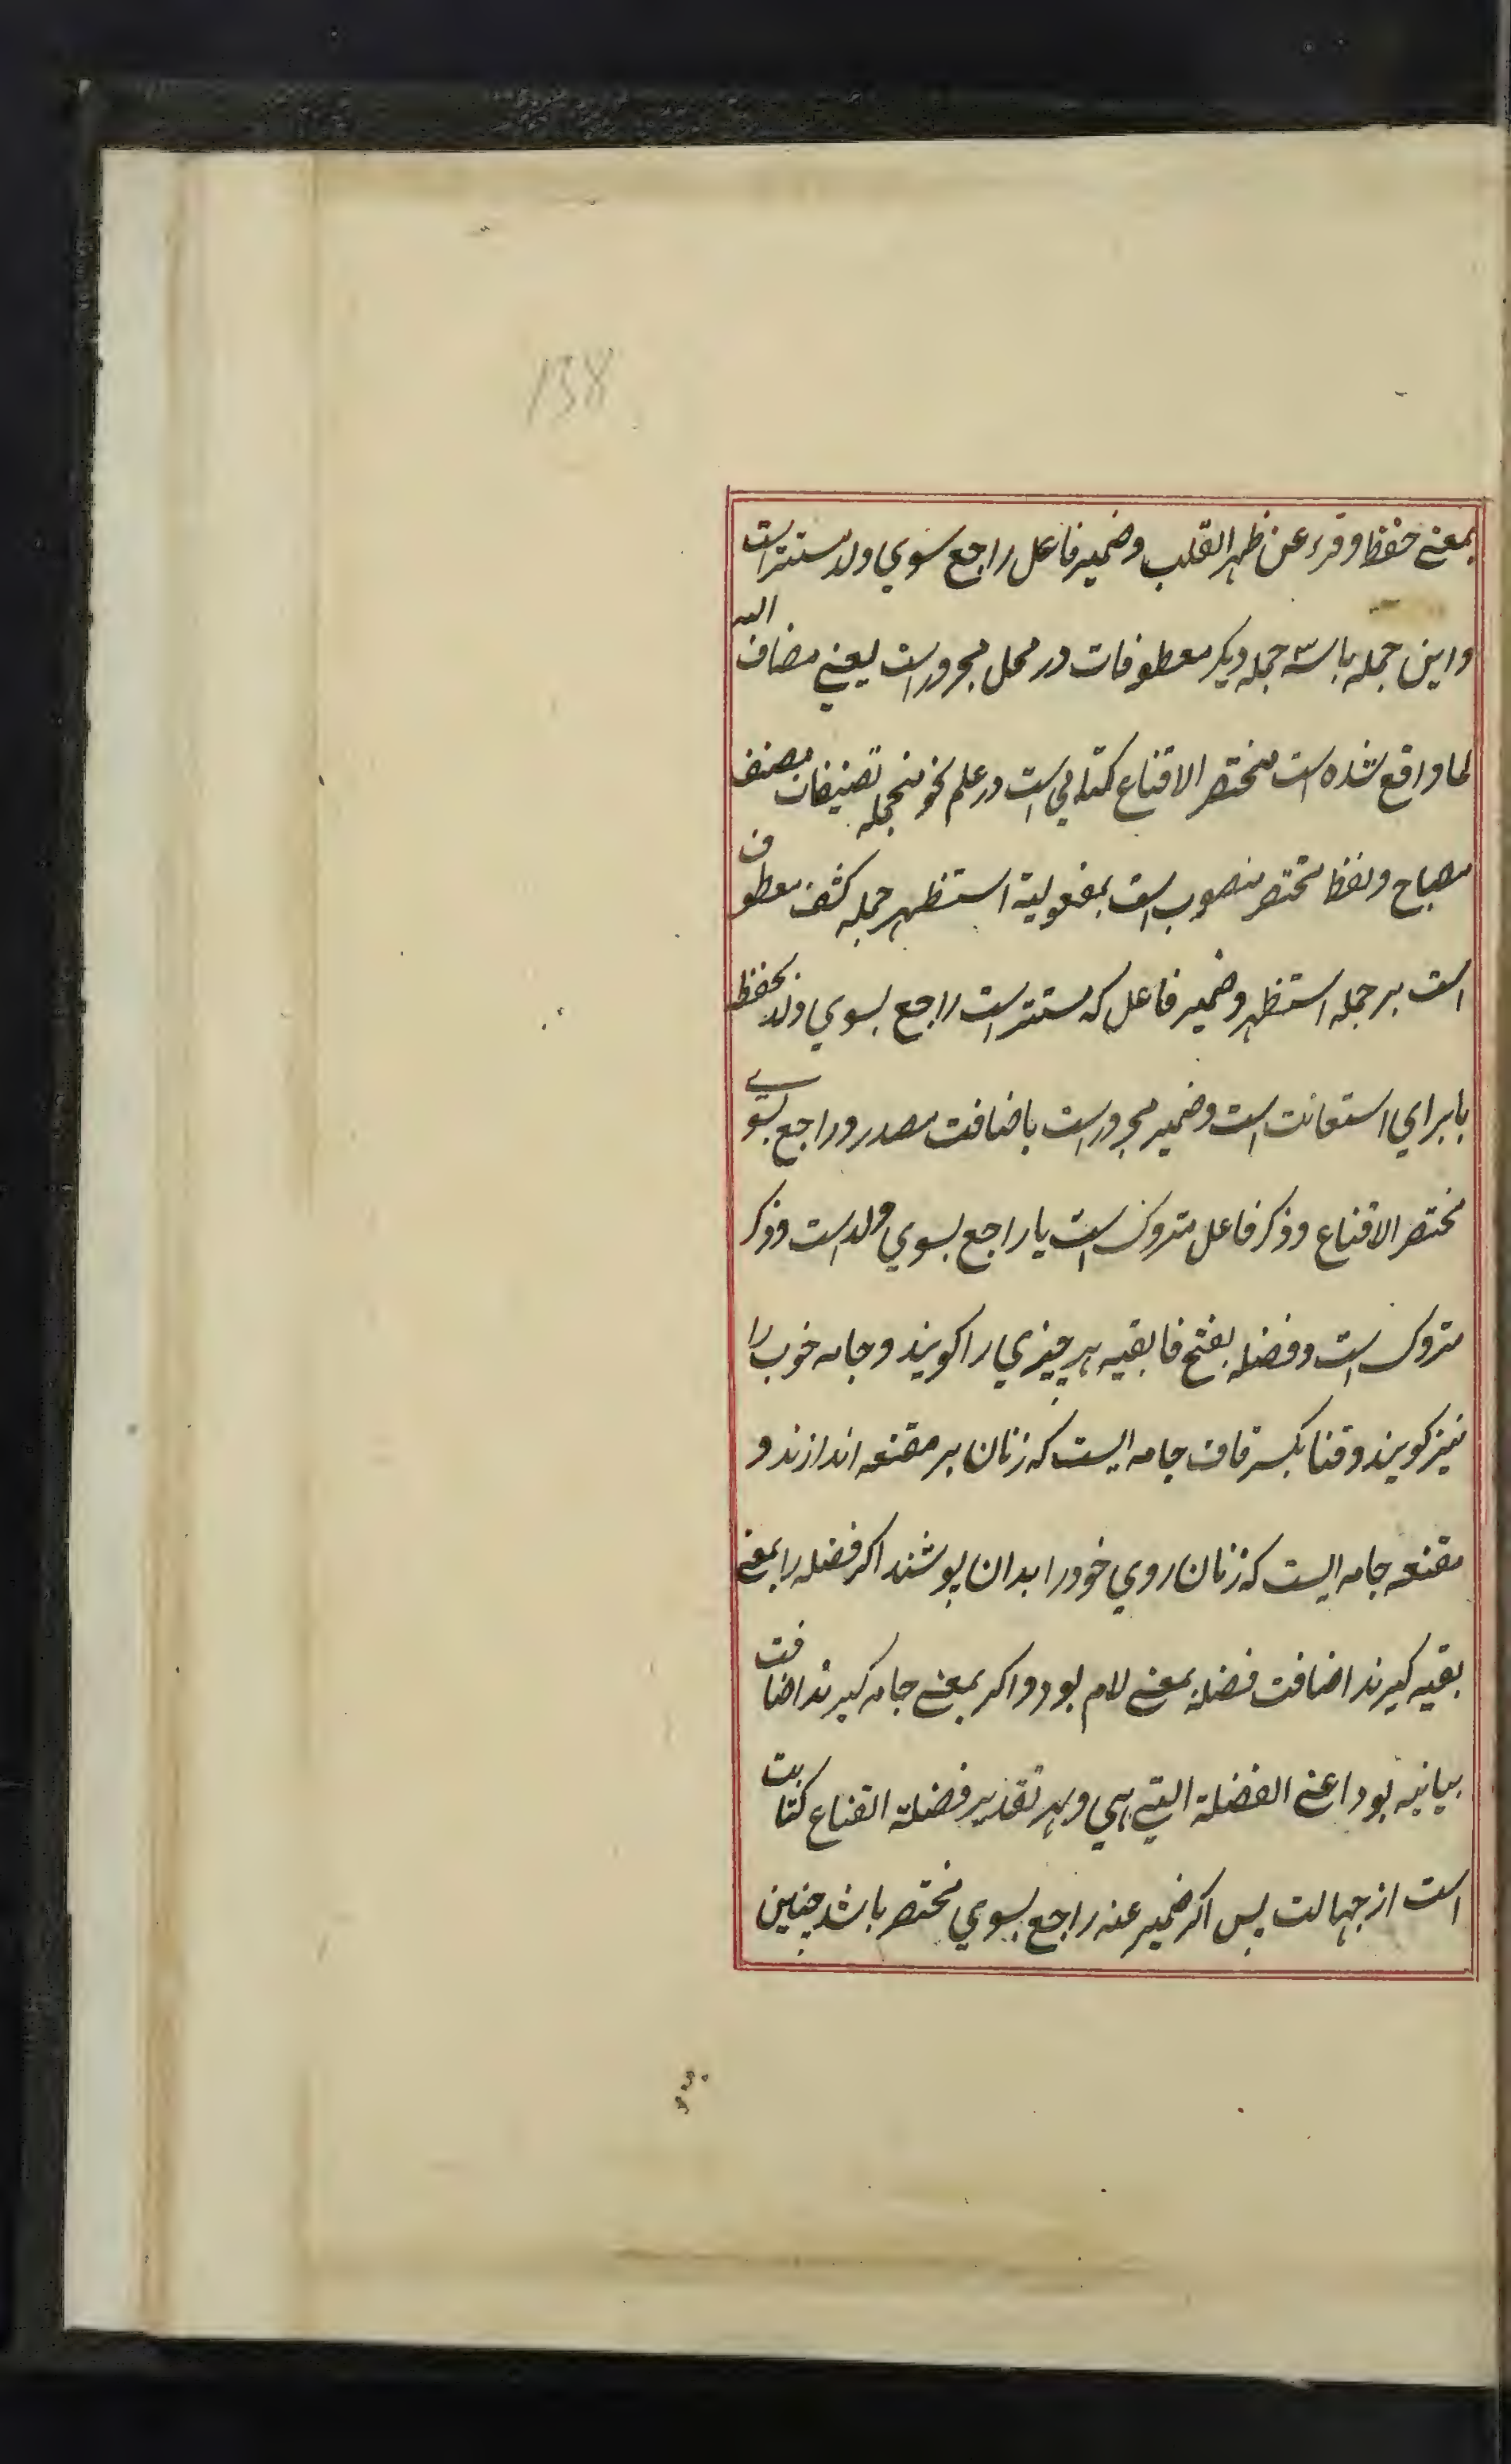 138
بمعنے حفظ وقرء عن ظهر القلب وضمیر فاعل راجع سوي ولد مستتر است
واین جمله با سه جمله دیکر معطوفات در محل مجرور است یعنے مضاف الیه
لما واقع شده است مختصر الاقناع کتابي است در علم نحو منجمله تصنیفات مصنف
مصباح ولفظ مختصر منصوب است بمفعولیة استظهر جمله کشف معطوف
است بر جمله استظهر وضمیر فاعل که مستتر است راجع بسوي ولد بحفظه
با براي استعانت است وضمیر مجرور است باضافت مصدر وراجع بسوے
مختصر الاقناع وذکر فاعل متروک است یا راجع بسوي ولد است وذکر
متروک است وفضله بفتح فا بقیه هر چیزي را کویند وجامه خوب را
نیز کویند وقناع بکسر قاف جامه ایست که زنان بر مقنعه اندازند و
مقنعه جامه ایست که زنان روي خود را بدان پوشند اکر فضله را بمعنے
بقیه کیرند اضافت فضله بمعنے لام بود واکر بمعنے جامه کیرند اضافت
بیانیه بود اعنے الفضلة التي هي وبهر تقدیر فضلة القناع کنایت
است از جهالت پس اکر ضمیر عنه راجع بسوي مختصر باشد چنین